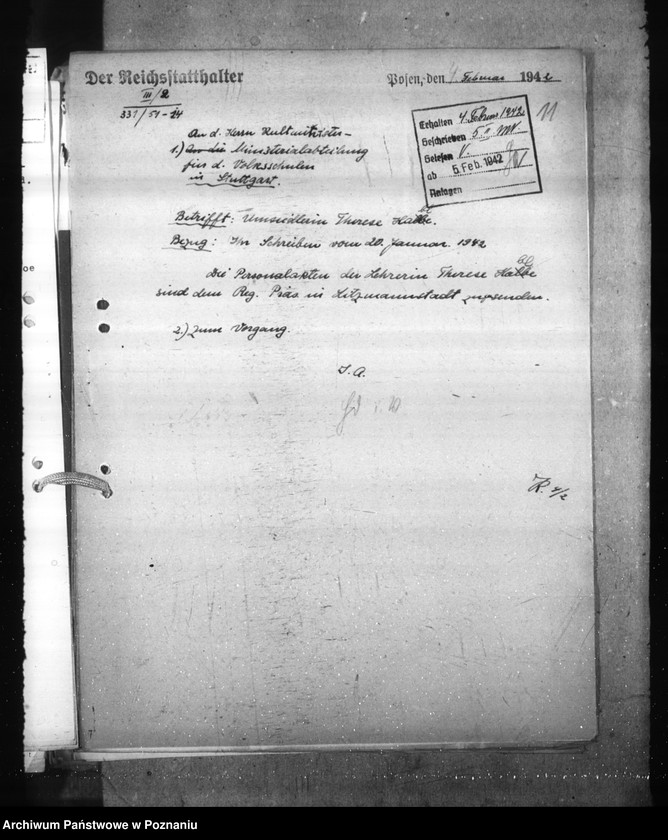 Der Reichsstatthalter
Posen, den 4. Februar 1942
III/2
331/51-24
An d. Herrn Kultminister-
1.) An die Ministerialabteilung
für d. Volksschulen
in Stuttgart.
Erhalten 4. Februar 1942
Geschrieben 5. II.
Gelesen
ab 5. Feb. 1942
Anlagen
11
Betrifft: Umsiedlerin Therese
Bezug: Ihr Schreiben vom 20. Januar 1942
Die Personalakten der Lehrerin Therese
sind dem Reg. Präs in Litzmannstadt zugesenden.
2.) Zum Vorgang.
I. A.
4/2
Archiwum Państwowe w Poznaniu